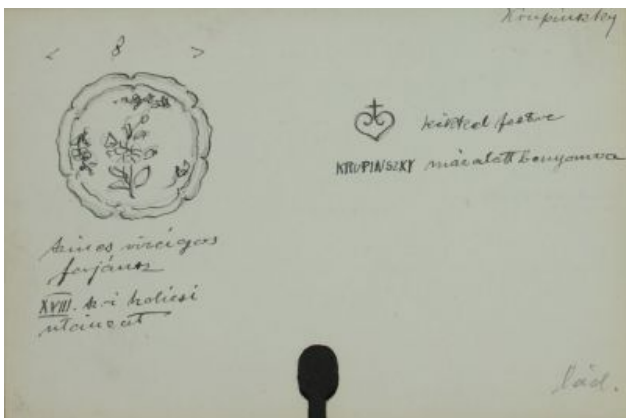 Krupinszky
< 8 >
kékkel festve
KRUPINSZKY máz alatt benyomva
színes virágos
fajánsz
XVIII. sz-i holicsi
utánzat